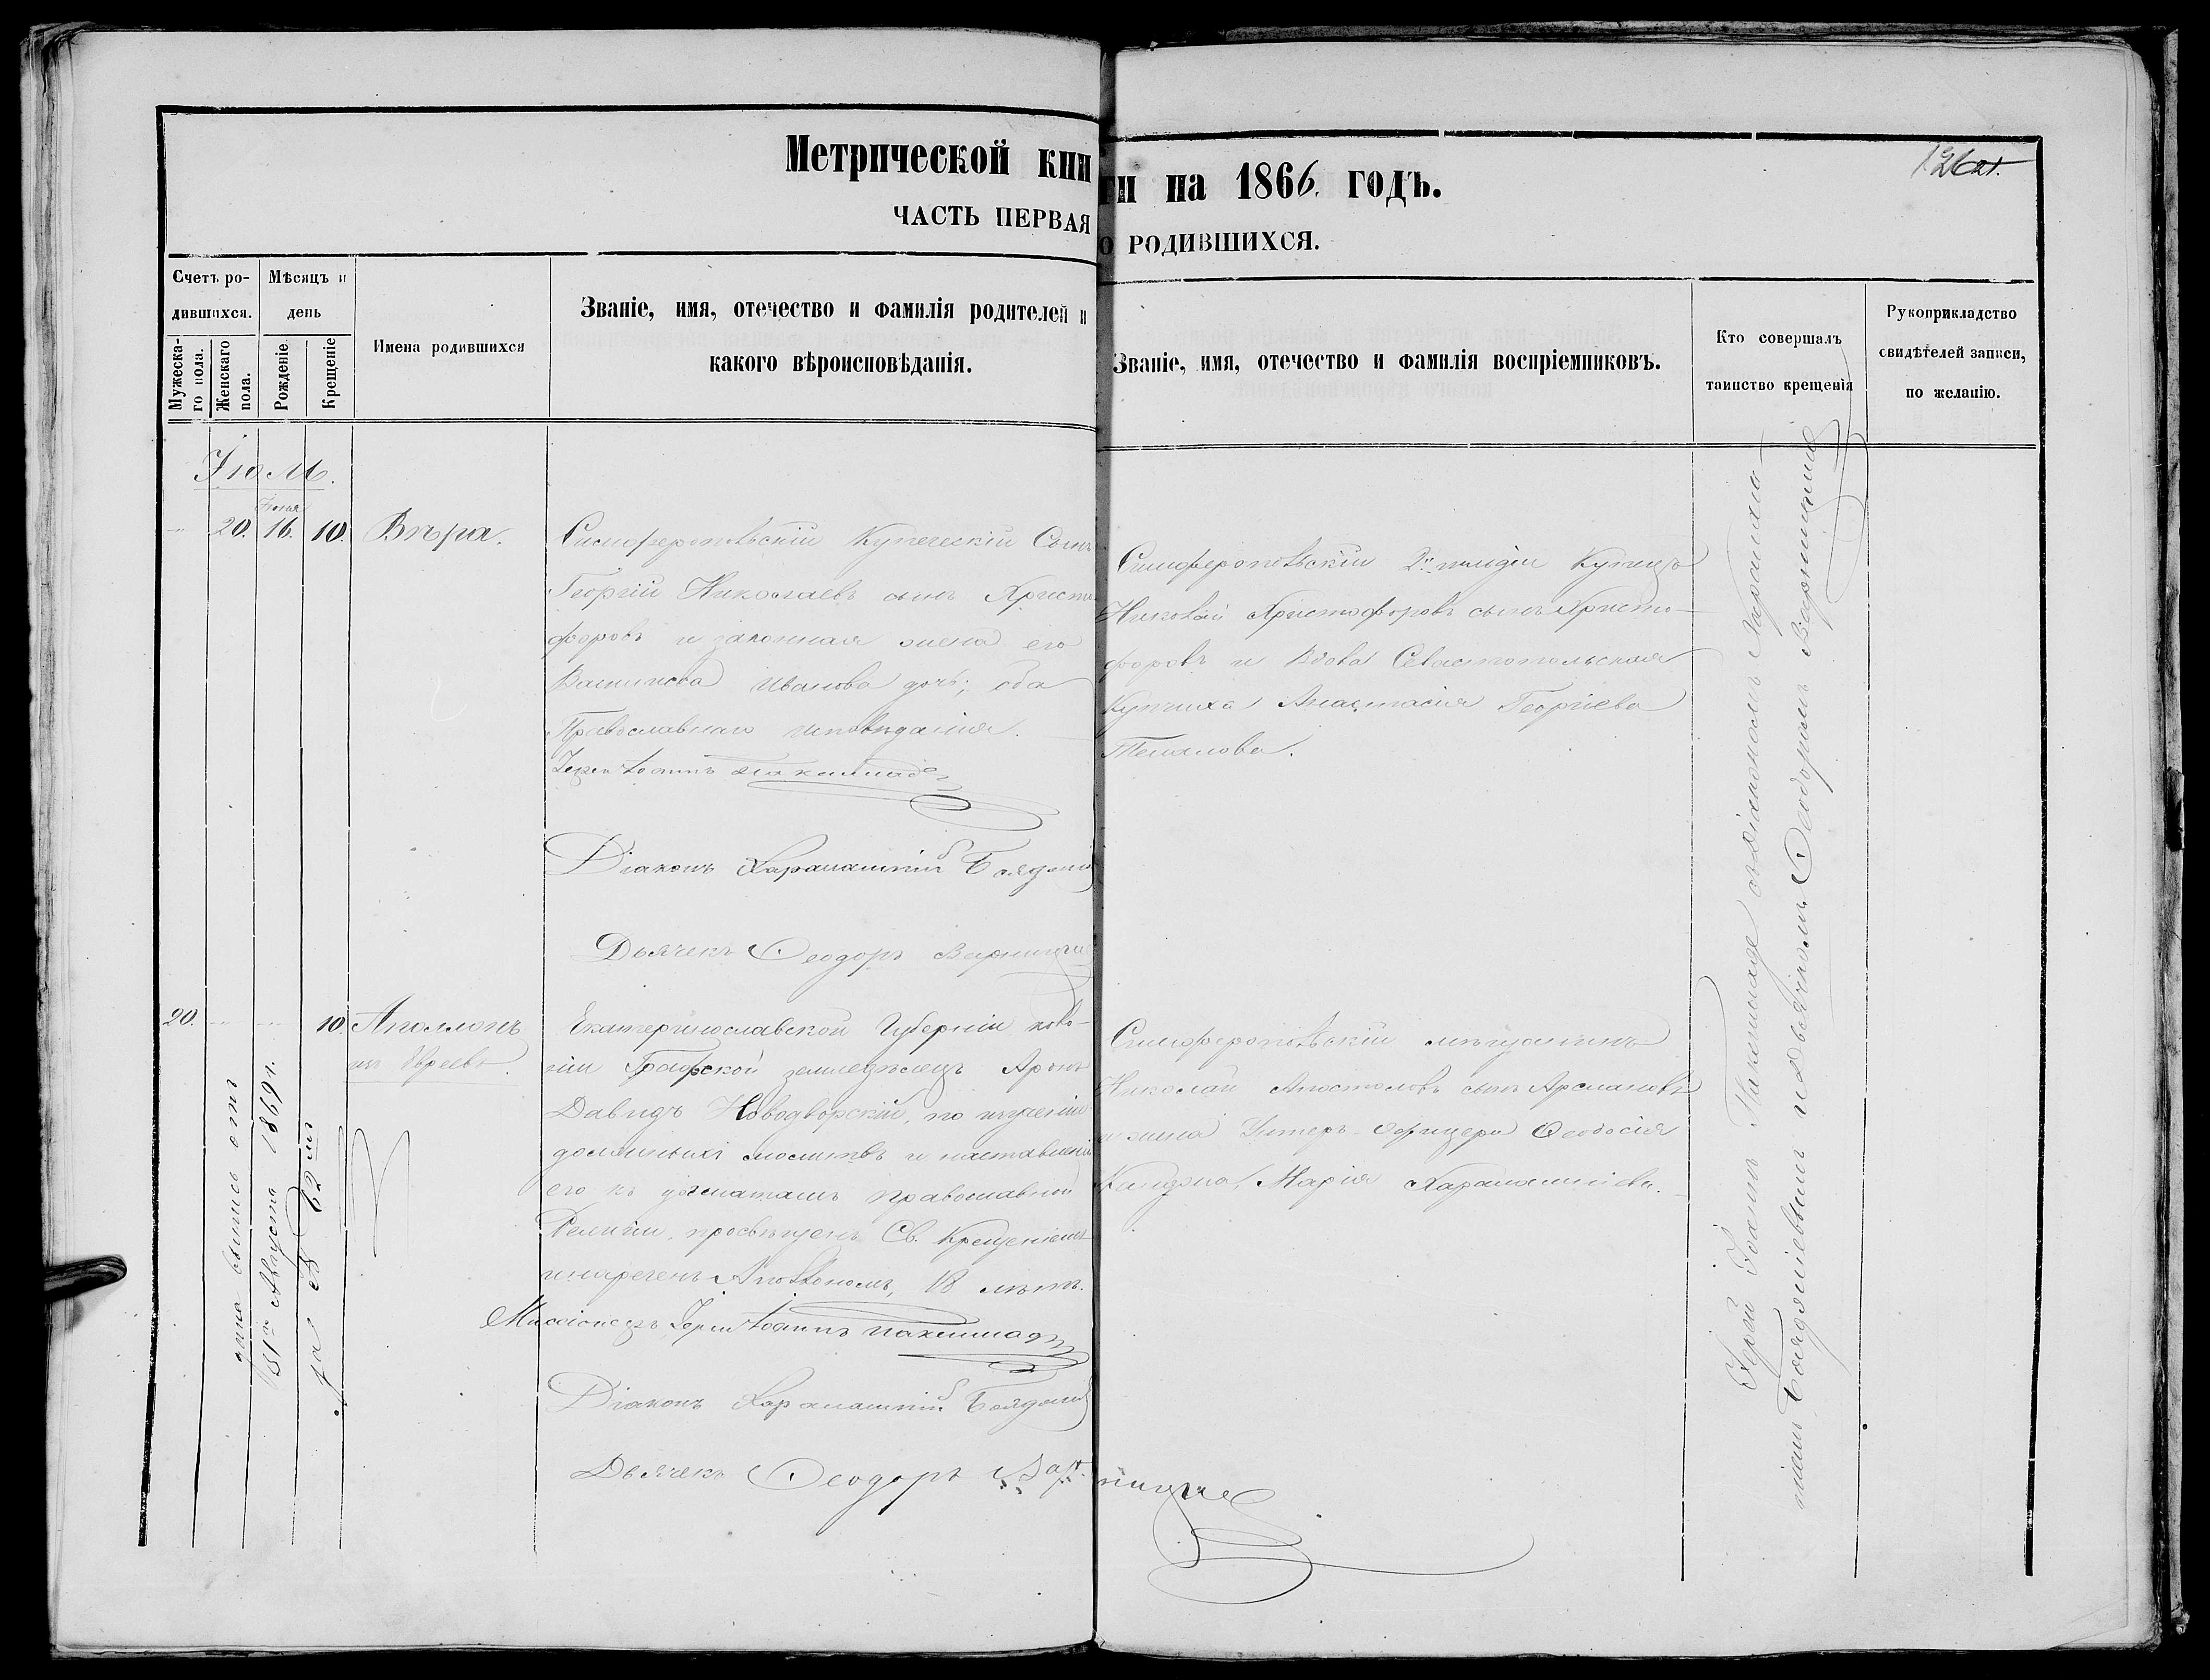 Метрической кни
ги на 1866. годъ.
126
ЧАСТЬ ПЕРВАЯ
О РОДИВШИХСЯ.
Счетъ ро-
дившихся.
Мужеска-
го пола.
Женскаго
пола.
Мѣсяцъ и
день
Рожденіе.
Крещеніе
Имена родившихся
Званіе, имя, отечество и фамилія родителей и
какого вѣроисповѣданія.
Званіе, имя, отечество и фамилія воспріемниковъ.
Кто совершалъ
таинство крещенія
Рукоприкладство
свидѣтелей записи,
по желанію.
20. 16. 10. Вѣра.
Симферопольскій Купеческій Сынъ
Георгій Николаевъ сынъ Христо
форовъ и законная жена его
Иванова дочь; оба
Православнаго исповѣданія.
Іерей Іоаннъ
Діаконъ Харалампій
Дьячекъ Ѳеодоръ
Симферопольскій 2й гильдіи Купецъ
Николай Христофоровъ сынъ Христо-
форовъ и Вдова Севастопольская
Купчиха Анастасія Георгіева
20. 10. Аполлонъ
изъ Евреевъ.
дана выпись отъ
31го Августа 1869 г.
за № 62м
Екатеринославской Губерніи коло-
ніи Графской земледѣлецъ Аронъ
Давидъ Новодворскій, по изученіи
должныхъ молитвъ и наставленіи
его къ догматамъ православной
Религіи, просвѣщенъ Св. Крещеніемъ
и нареченъ Аполлономъ, 18 лѣтъ.
Миссіонеръ Іерей Іоаннъ
Діаконъ Харалампій
Дьячекъ Ѳеодоръ
Симферопольскій мѣщанинъ
Николай Апостоловъ сынъ Арслановъ
и жена Унтеръ-Офицера Ѳеодосія
Марія Харалампіева.
Іерей Іоаннъ съ діакономъ Харалам-
піемъ и дьячкомъ Ѳеодоромъ